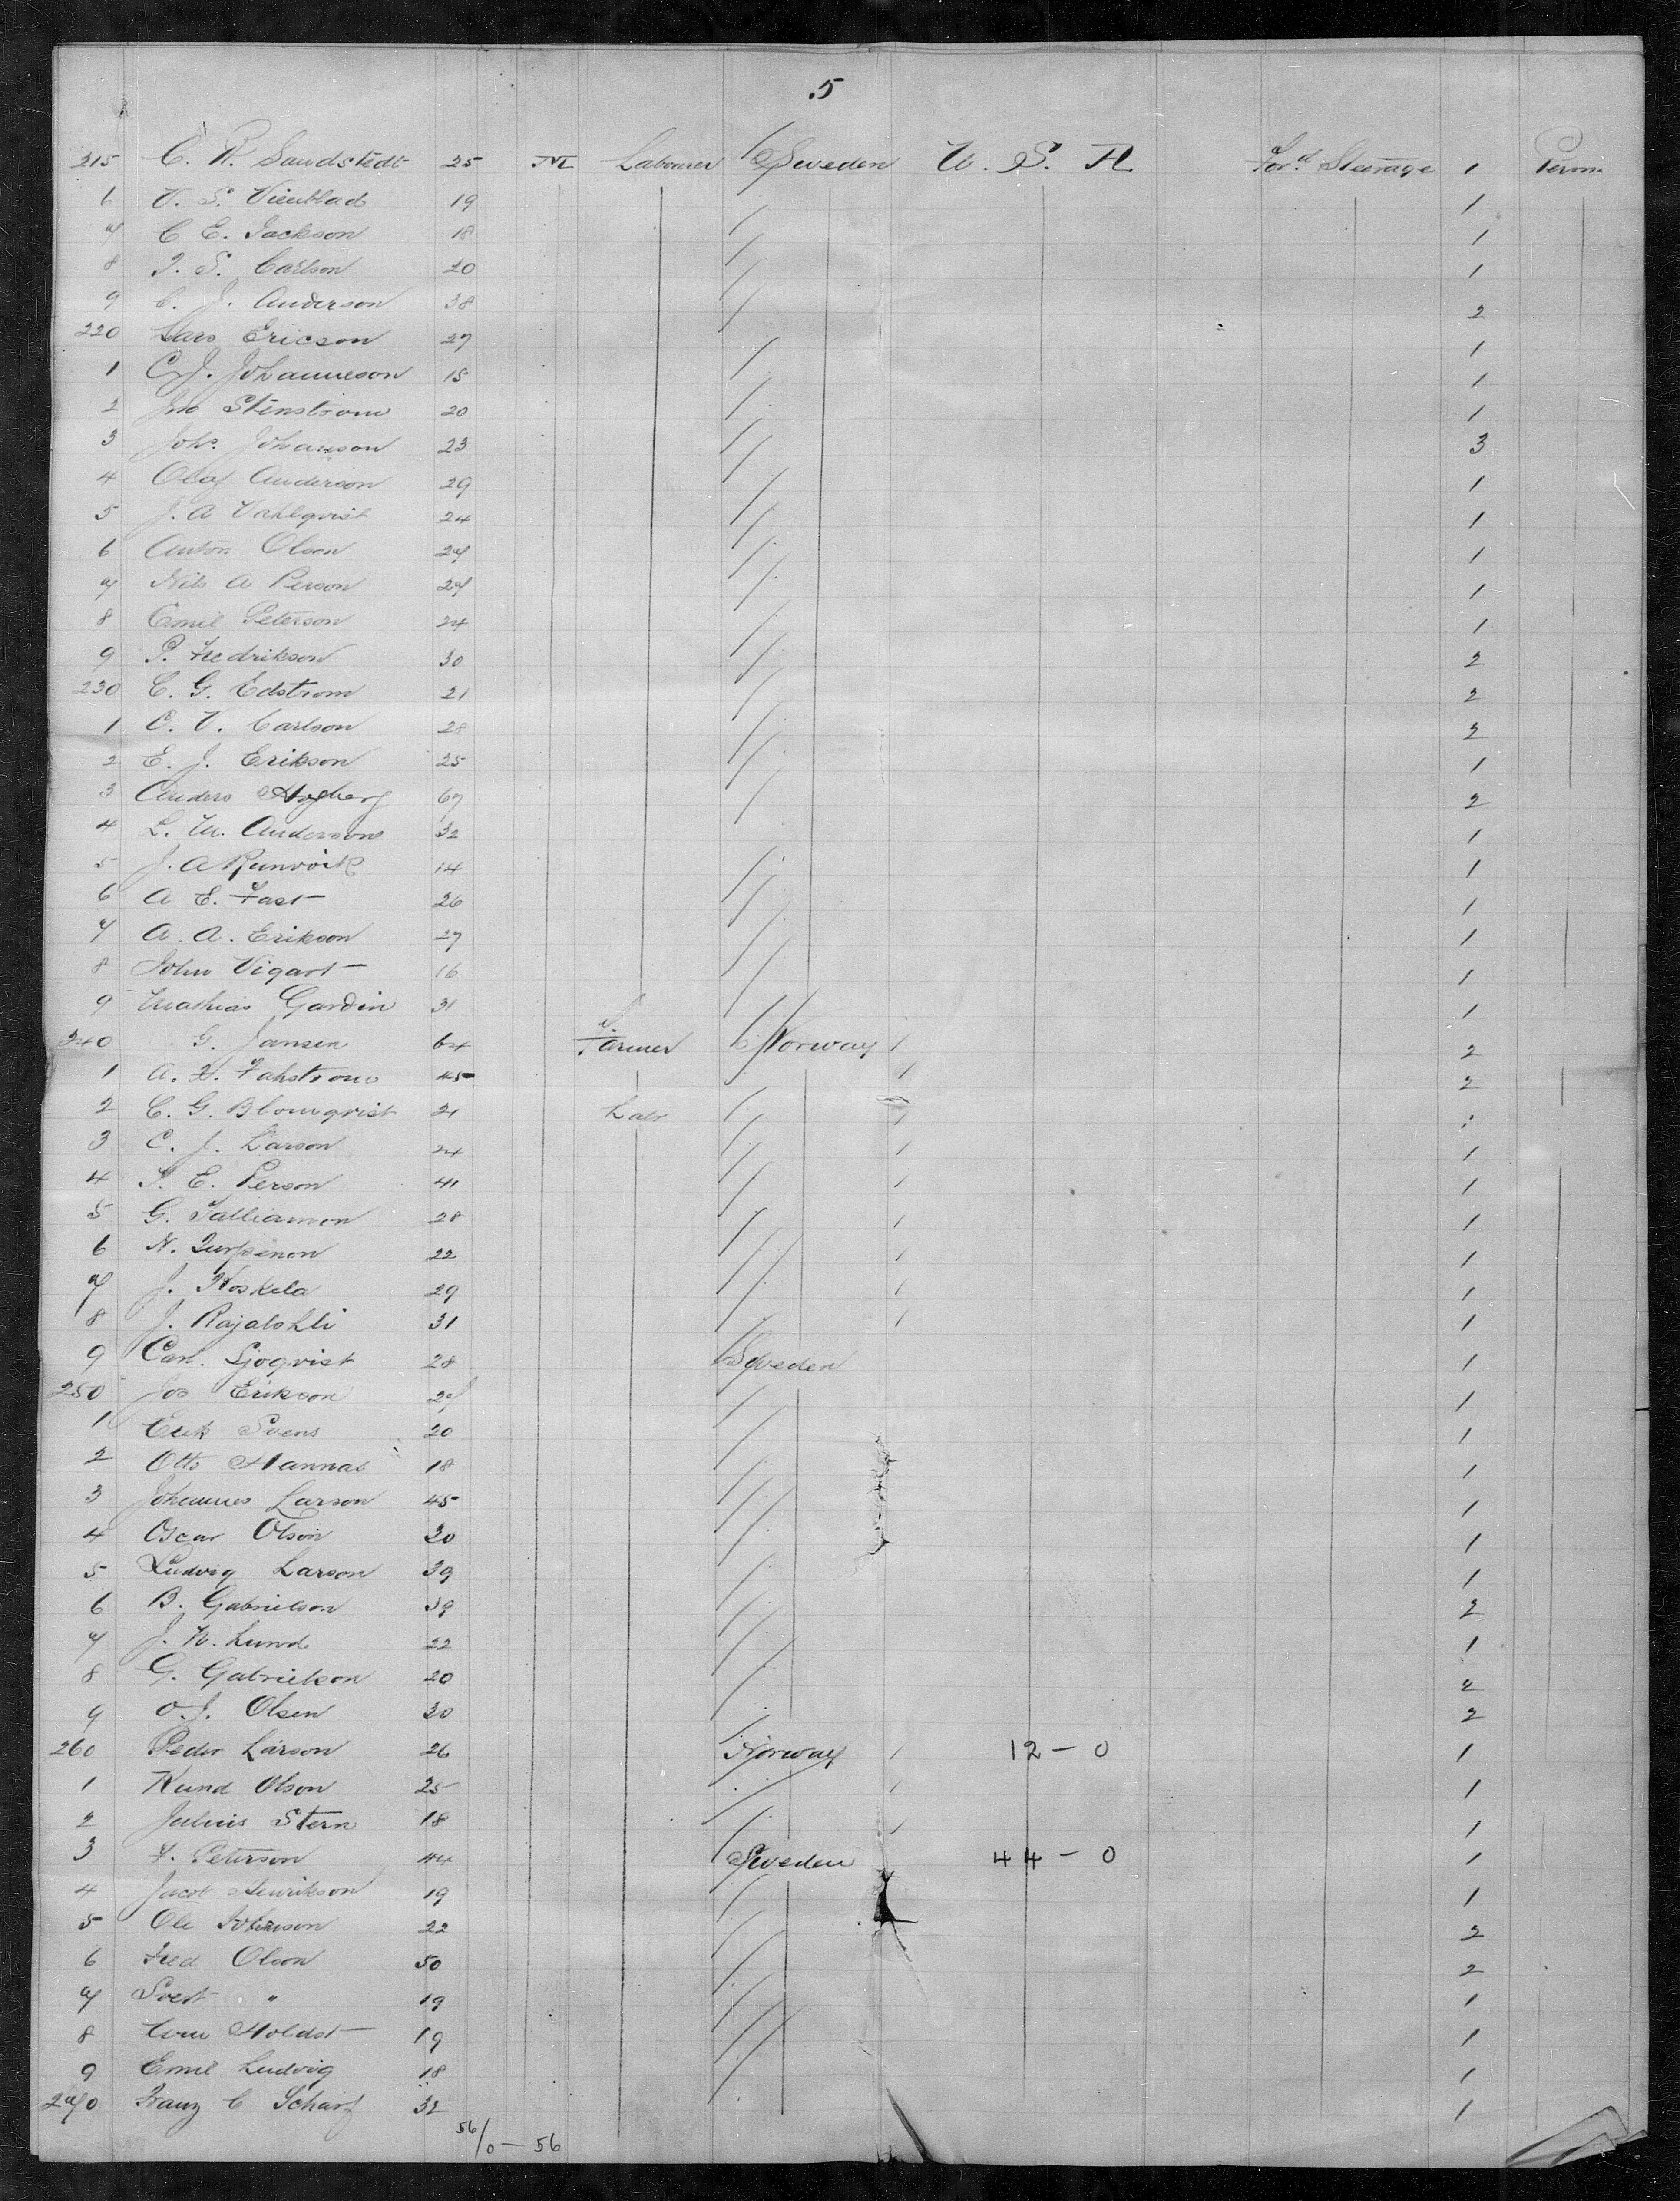 5
215 C. R. Sandstedt 25 M Labourer Sweden U. S. A. For.d Steerage 1 Perm.
6 V. S. Vieublad 19 1
7 C E. Jackson 18 1
8 J. S. Carlson 20 1
9 C. J. Anderson 38 2
220 Lars Ericson 27 1
1 C. J. Johanneson 15 1
2 Jno Stenstrom 20 1
3 Johs. Johanson 23 3
4 Olof Anderson 29 1
5 J. A Vahlqvist 24 1
6 Anton Olsen 27 1
7 Nils A Person 27 1
8 Emil Peterson 24 1
9 P. Fredrikson 30 2
230 C. G. Edstrom 21 2
1 C. V. Carlson 28 2
2 E. J. Erikson 25 1
3 Anders Hogberg 67 2
4 L. M. Anderson 32 1
5 J. A Runvoik 14 1
6 A E. Fast 26 1
7 A. A. Erikson 27 1
8 John Vigart 16 1
9 Mathias Gardin 31 1
240 G. Jansen 64 Farmer Norway 2
1 A. F. Fahstrom 45 2
2 C. G. Blomqvist 21 Labr 1
3 C. J. Larson 24 1
4 P. E. Person 41 1
5 G. Talliamen 28 1
6 N. 22 1
7 J. Koskela 29 1
8 J. 31 1
9 Carl. Sjoqvist 28 Sweden 1
250 Jos Erikson 27 1
1 Erik Svens 20 1
2 Otto Hannas 18 1
3 Johannes Larson 45 1
4 Oscar Olson 30 1
5 Ludvig Larson 39 1
6 B. Gabrielson 39 2
7 J. N. Lund 22 1
8 G. Gabrielson 20 2
9 O. J. Olsen 30 2
260 Peder Larson 26 Norway 12 - 0 1
1 Kund Olson 25 1
2 Julius Stern 18 1
3 F. Peterson 44 Sweden 44 - 0 1
4 Jacob Henrikson 19 1
5 Ole Johnson 22 2
6 Fred Olson 50 2
7 Svert " 19 1
8 Holdst 19 1
9 Emil Ludvig 18 1
270 Franz C Scharf 32 1
56/0 - 56